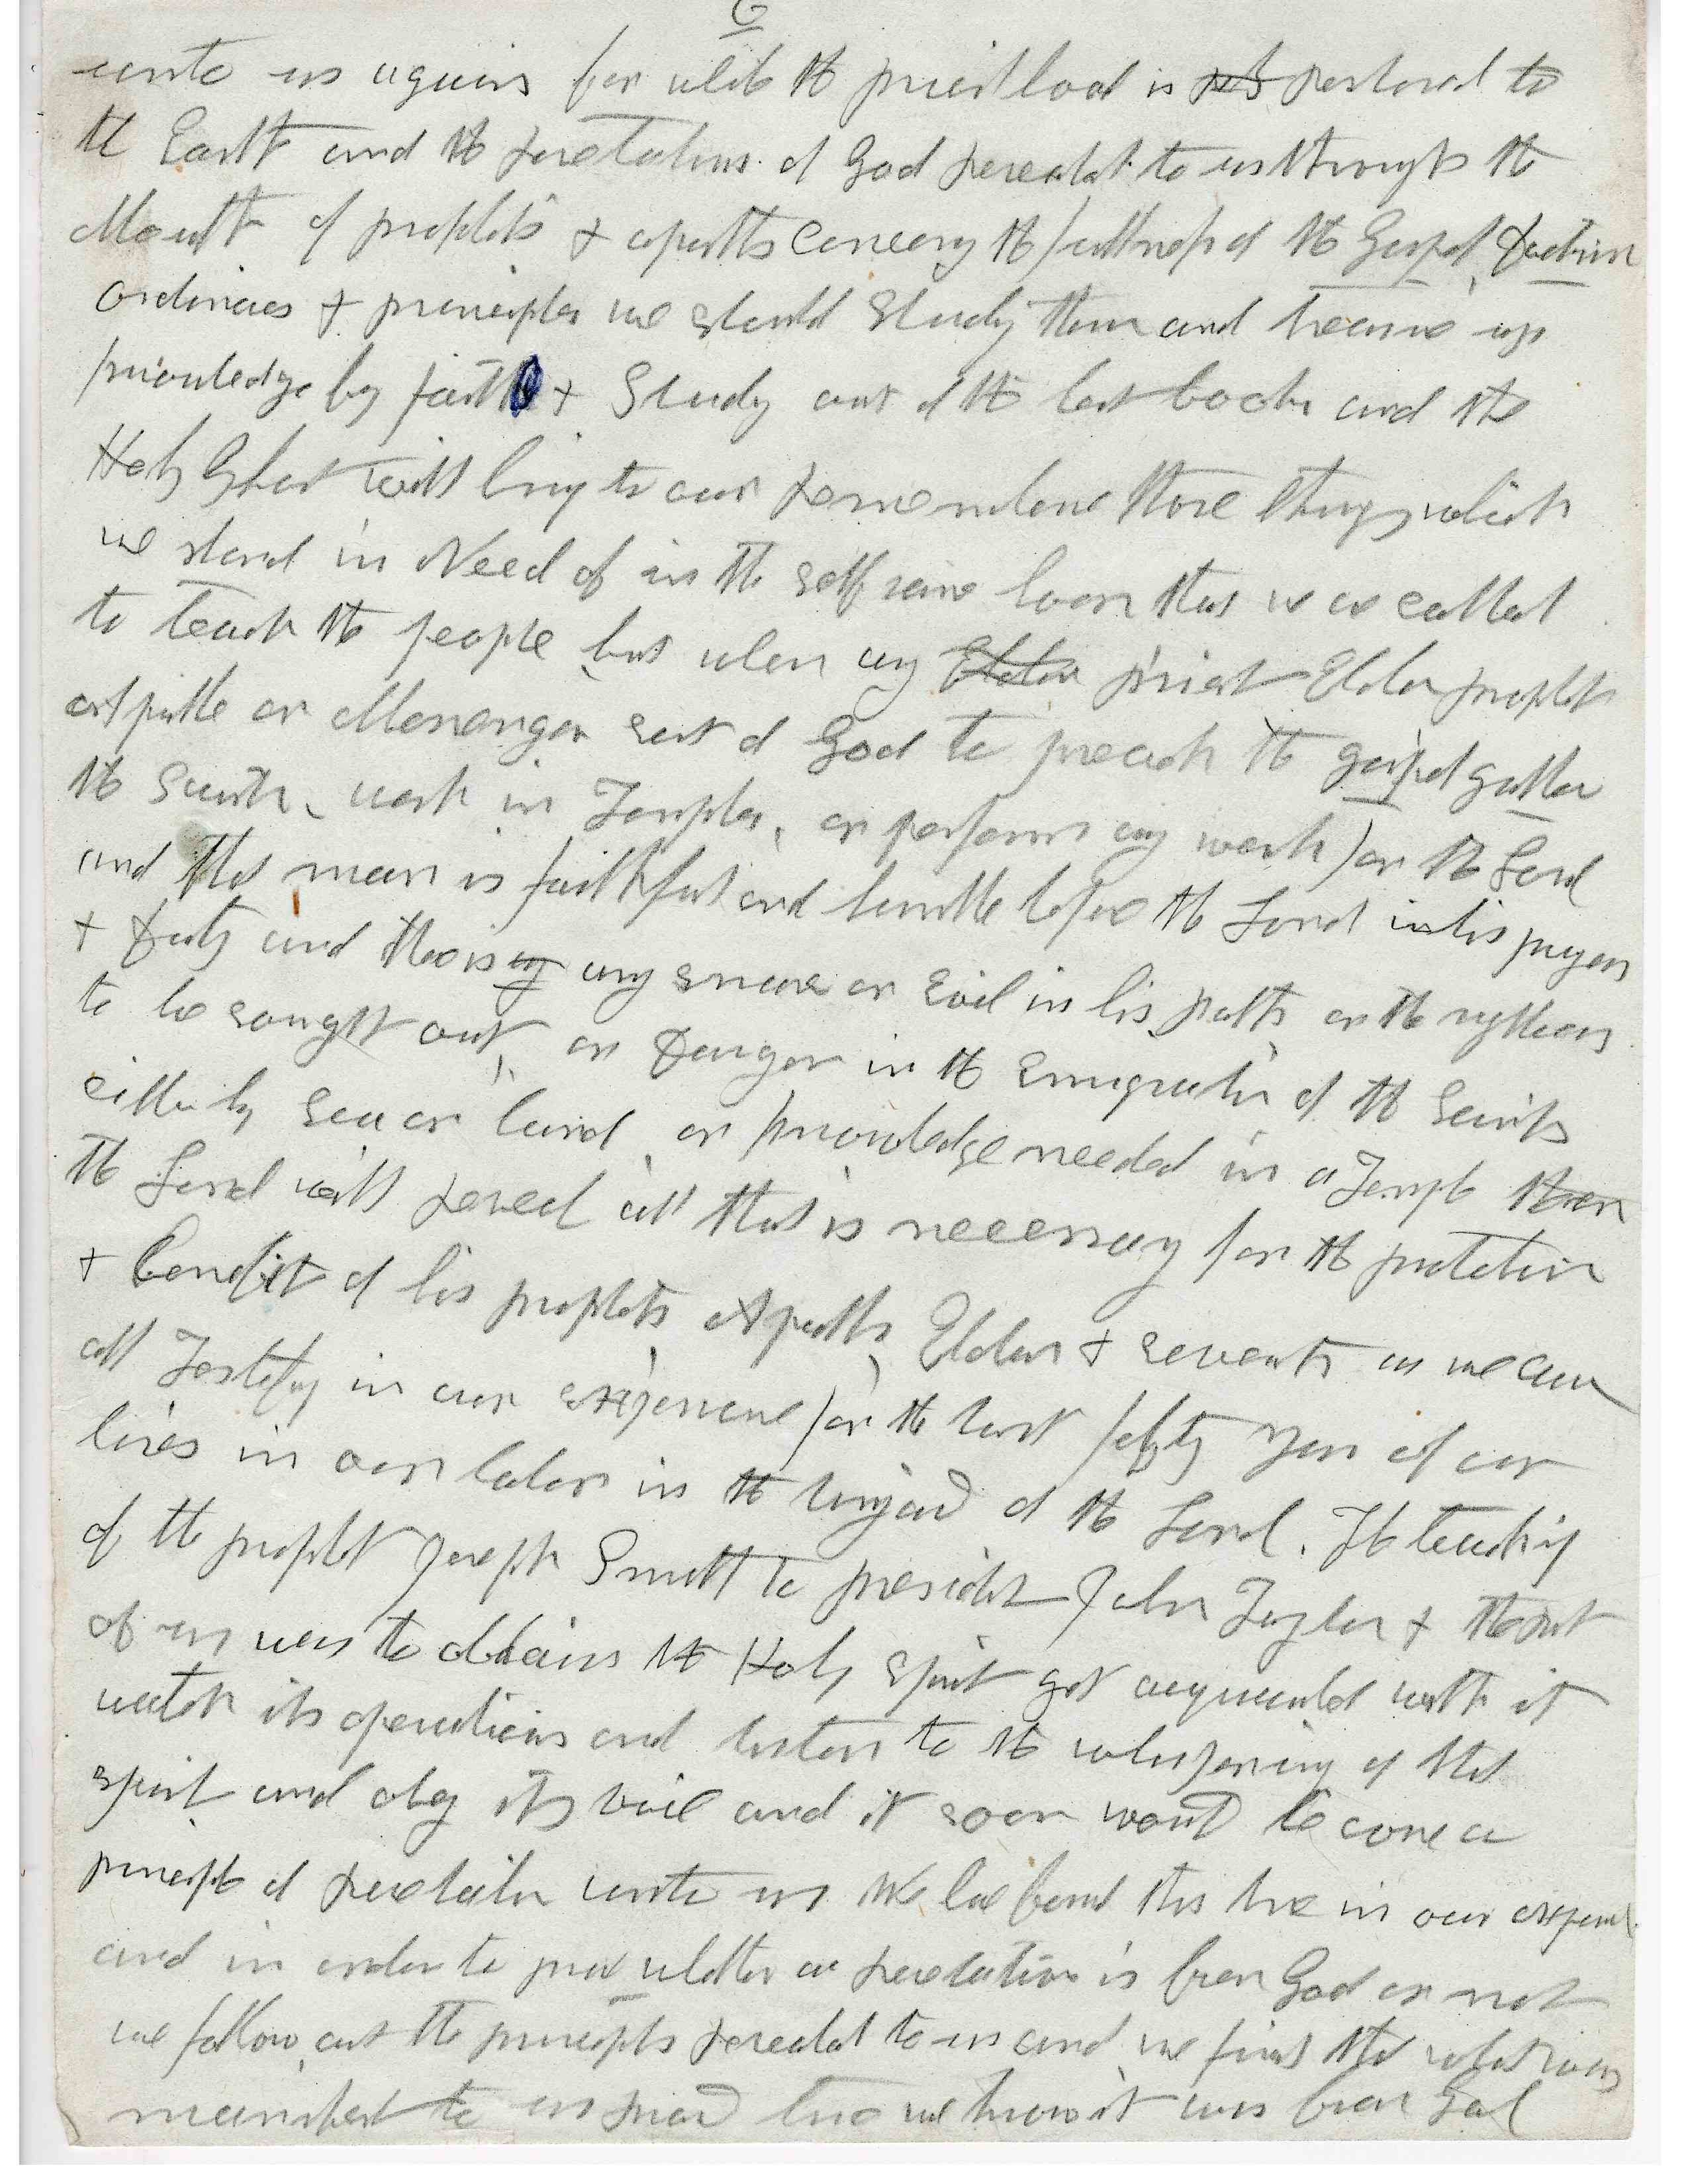 6
unto us again for while the priesthood is restored to
the Earth and the revelations of God revealed to us through the
Mouth of prophets & apostles concerng the fullness of the Gospel Doctrin
ordinances & principles we should Study them and treasure up
knowledge by faith & Study out of the best books and the
Holy Ghost will bring to our remembrance those things which
we stand in Need of in the self same hour that we are called
to teach the people but when any Elder priest Elder prophet
apostle or Messenger sent of God to preach the gospel gather
the Saints, work in Temples, or perform any work for the Lord
and that man is faithful and humble before the Lord in his prayers
& Duty and there is any any snare or Evil in his path, or the righteous
to be sought out, or Danger in the Emigration of the Saints
either by sea or land, or knowledge needed in a Temple then
the Lord will reveal all that is necessary for the protection
& benefit of his prophets Apostles, Elders & Seventies as we can
all Testify in our experience for the last fifty years of our
lives in our labor in the vinyard of the Lord. The teaching
of the prophet Joseph Smith to president John Taylor & the rest
of us was to obtain the Holy Spirit get acquainted with it
watch its operations and listen to the whisperings of that
spirit and obey its voice and it soon would become a
principle of revelation unto us. We have found this true in our experience
and in order to prove whether a revelation is from God or not
we follow out the principles revealed to us and we find that what was
manifest to us proved true we know it was from God